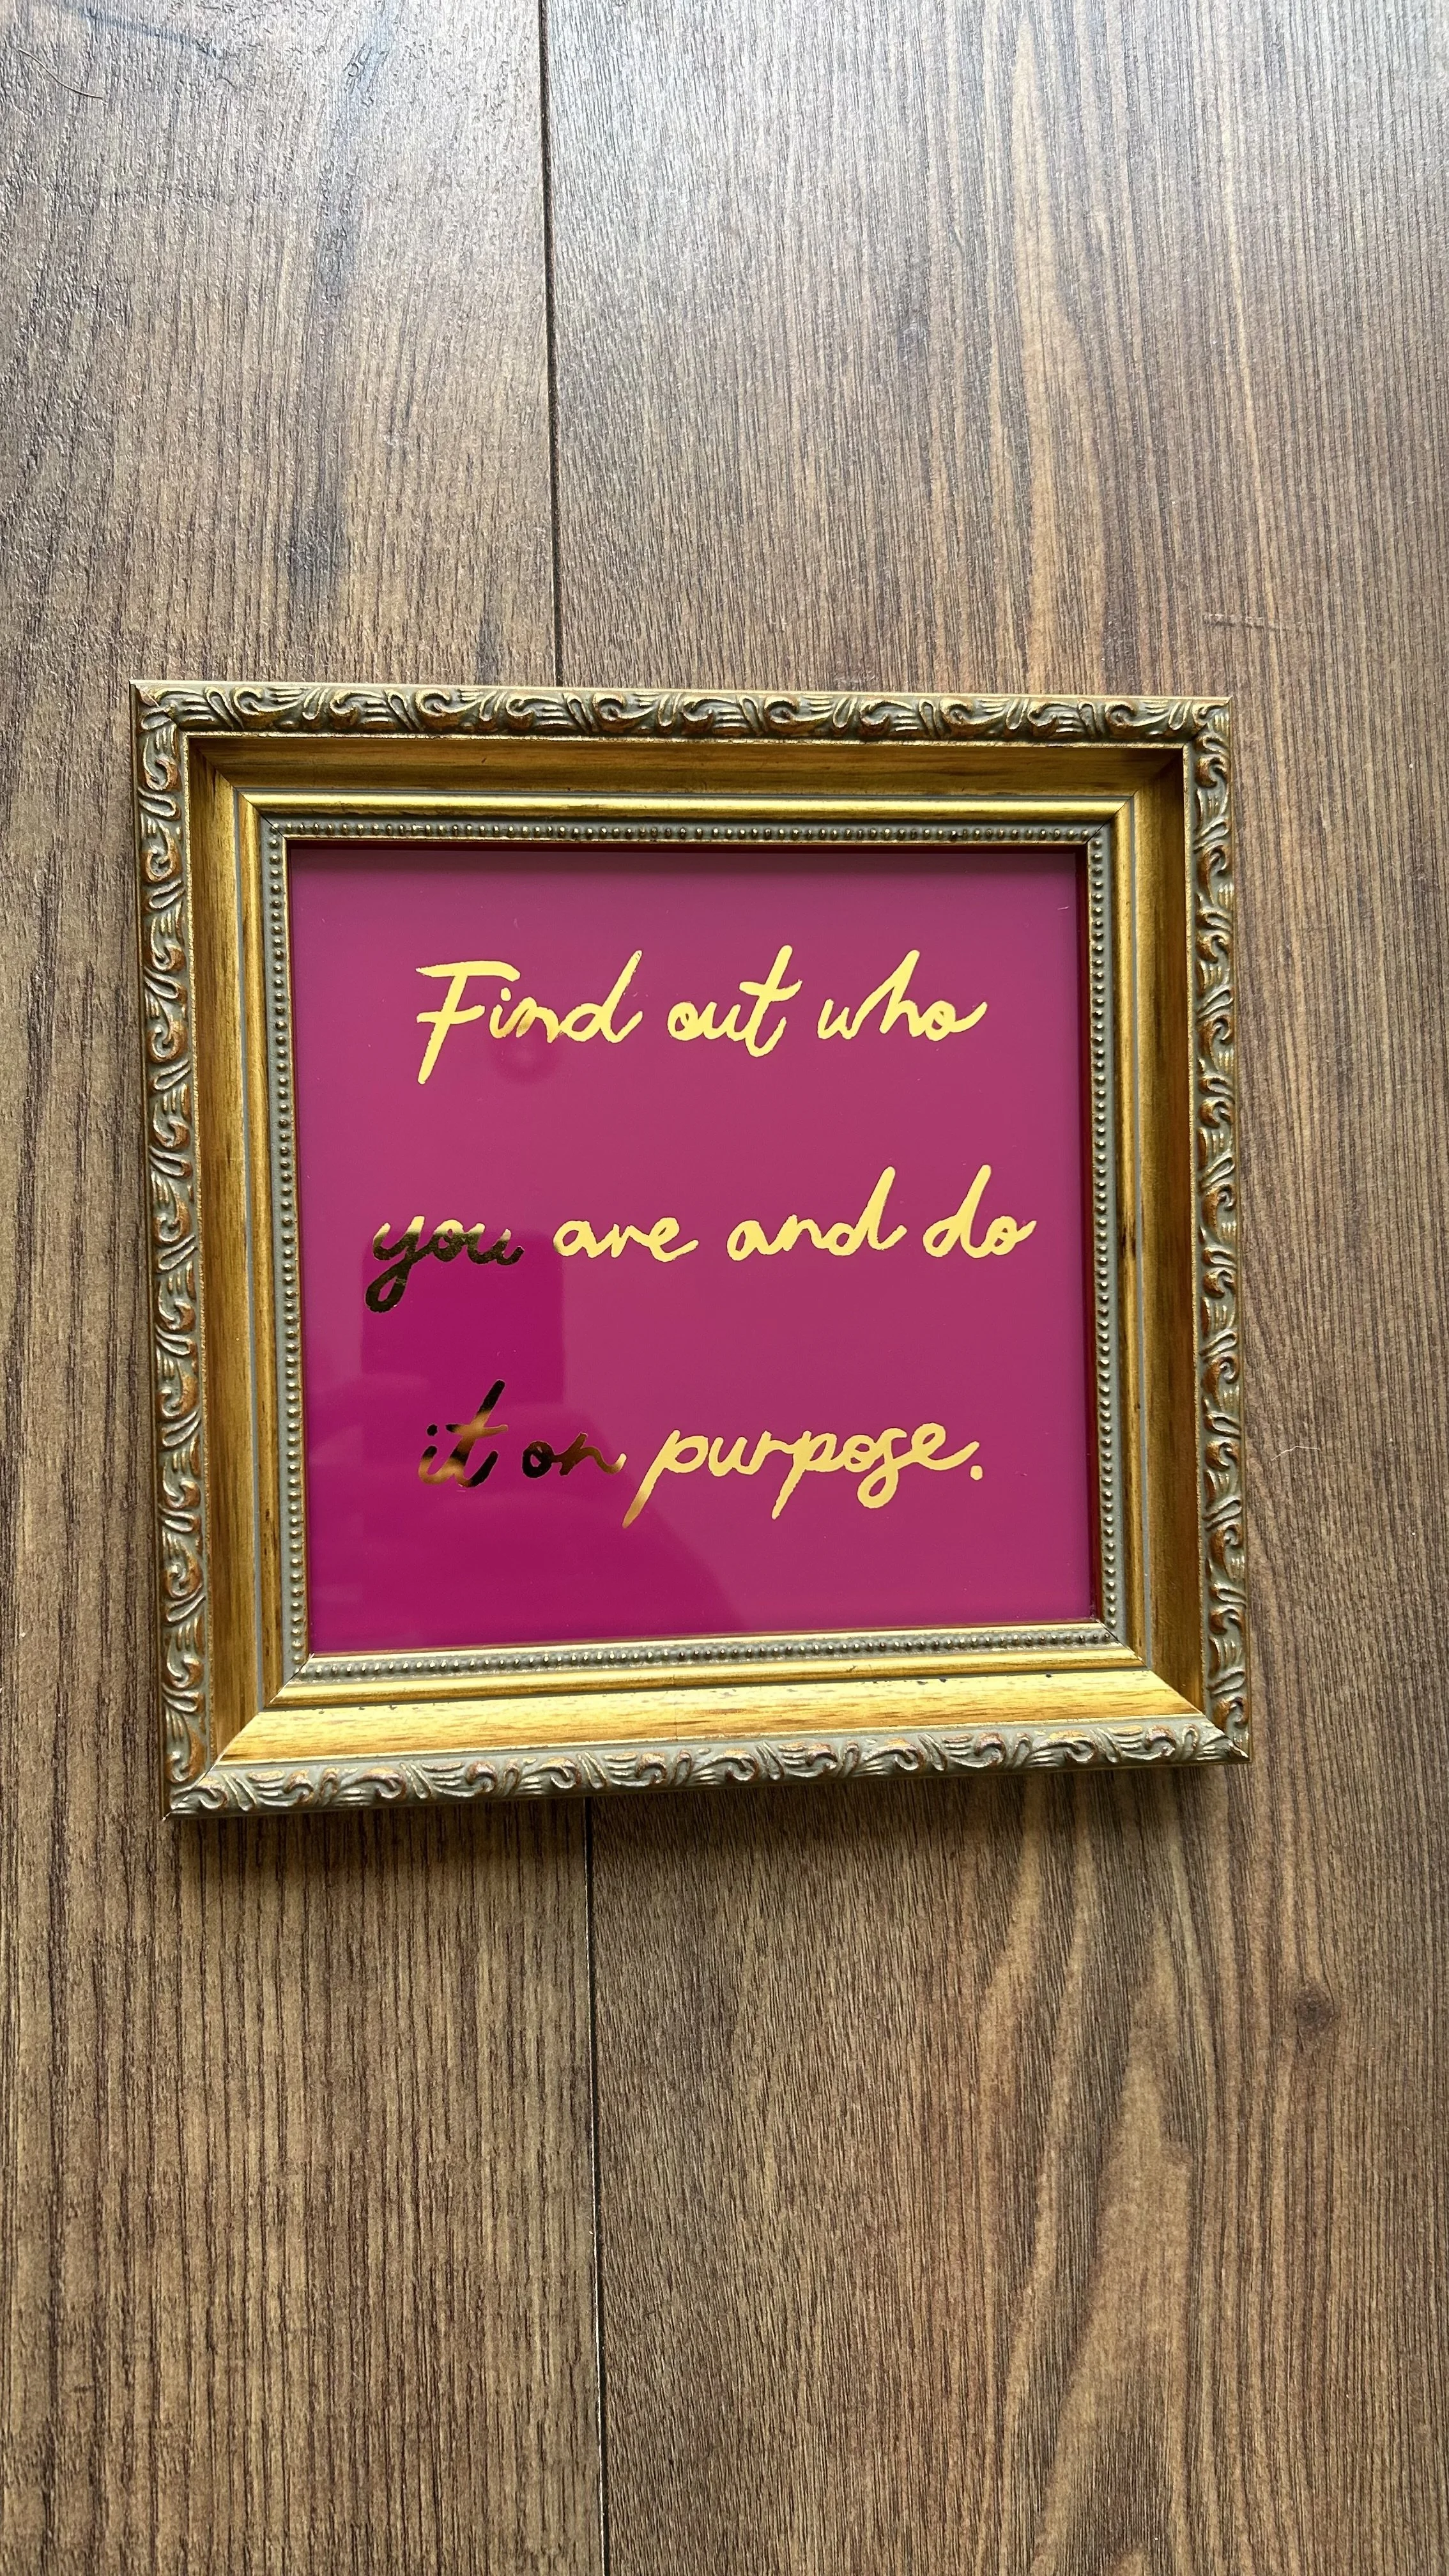 Find out who
you are and do
it on purpose.